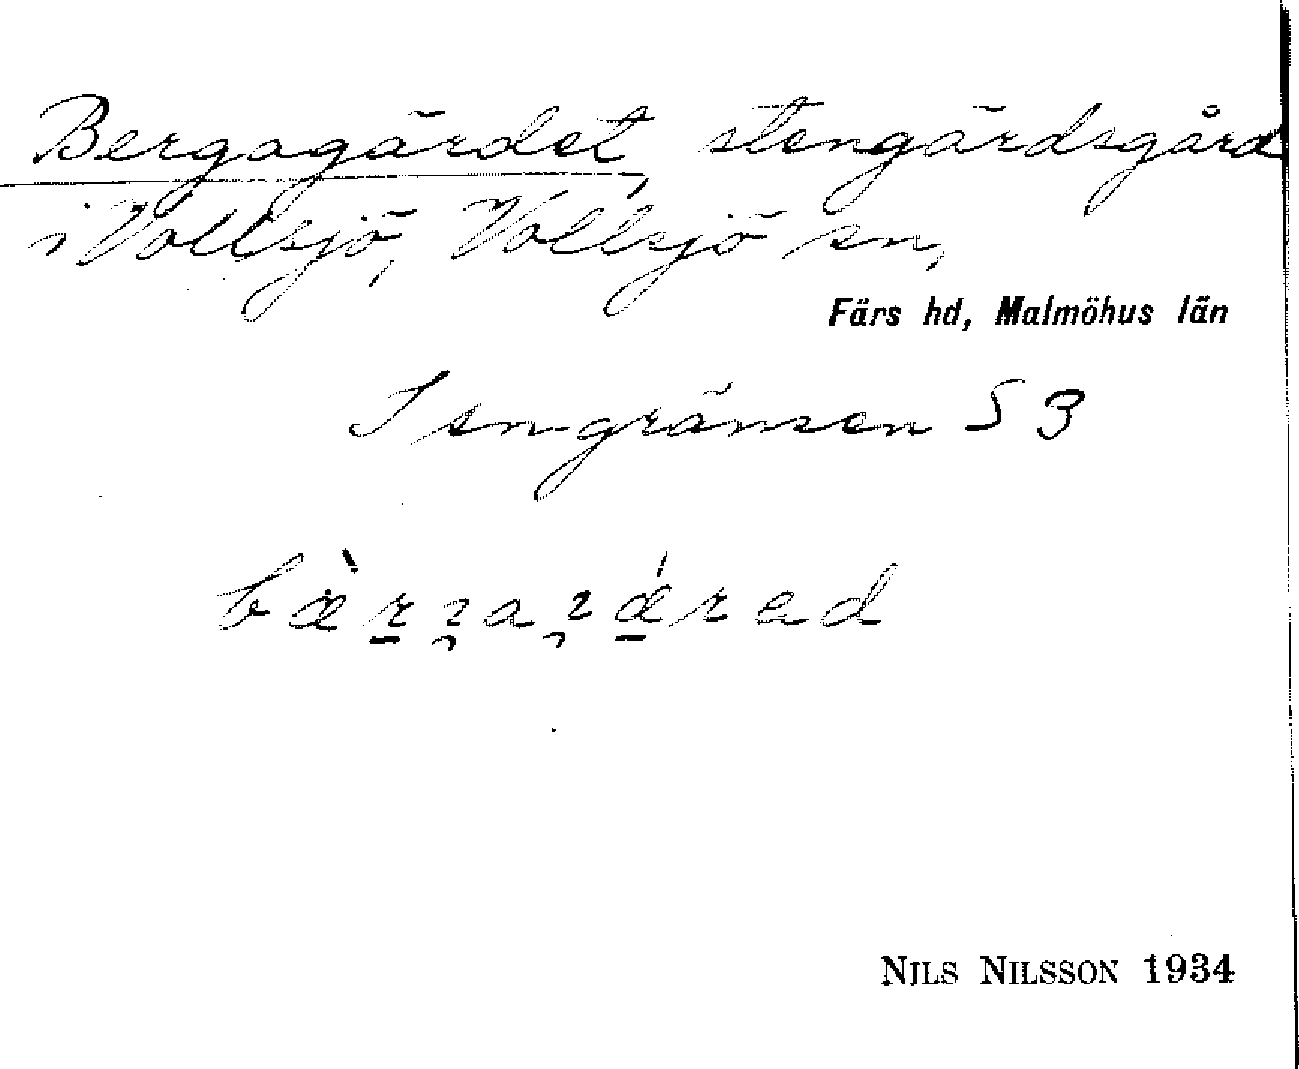 Bergagärdet, stengärdsgård
i Vollsjö, Vollsjö sn,
Färs hd, Malmöhus län
I sn-gränsen S 3
NILS NILSSON 1934